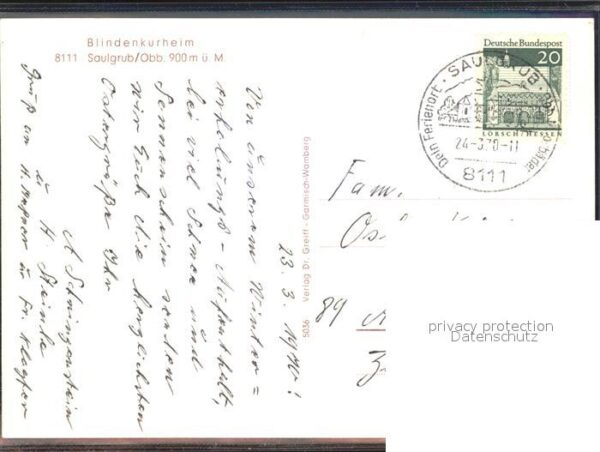 Blindenkurheim
8111 Saulgrub/Obb. 900 m ü. M.
Deutsche Bundespost
20
LORSCH/HESSEN
SAULGRUB
Dein Ferienort
24-3.70-11
8111
23. 3. 1970!
Von unserem Winter=
erholungs-Aufenthalt,
bei viel Schnee und
Sonnenschein senden
wir Euch die herzlichsten
Ostergrüße Ihr
u H.
Gruß an H.
Verlag Dr. Greiff · Garmisch-Wamberg
5036
Fam.
89
privacy protection
Datenschutz